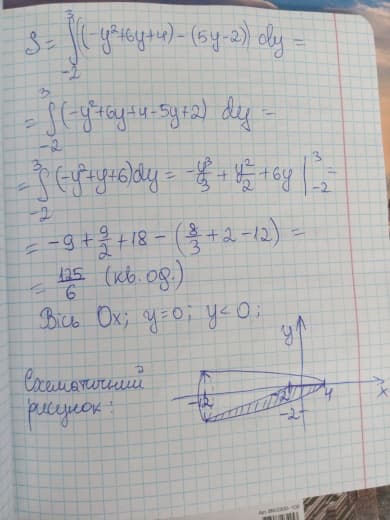 S = ∫₋₂³((-y²+6y+4)-(5y-2)) dy =
= ∫₋₂³(-y²+6y+4-5y+2) dy =
= ∫₋₂³(-y²+y+6)dy = -y³/3 + y²/2 + 6y |₋₂³ =
= -9 + 9/2 + 18 - (8/3 + 2 - 12) =
= 125/6 (кв. од.)
Вісь Ox; y=0; y<0;
y
Схематичний
рисунок:
-12
-2
4
x
-2